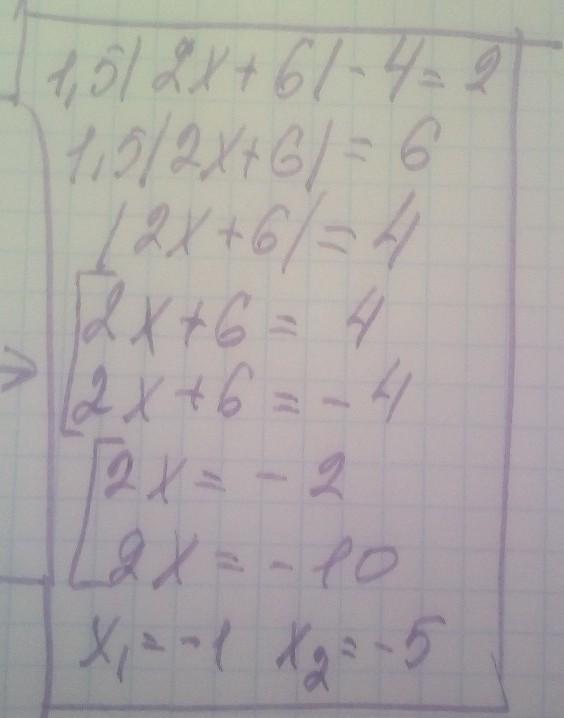 1,5|2x+6|-4=2
1,5|2x+6|=6
|2x+6|=4
2x+6=4
2x+6=-4
2x=-2
2x=-10
x₁=-1 x₂=-5